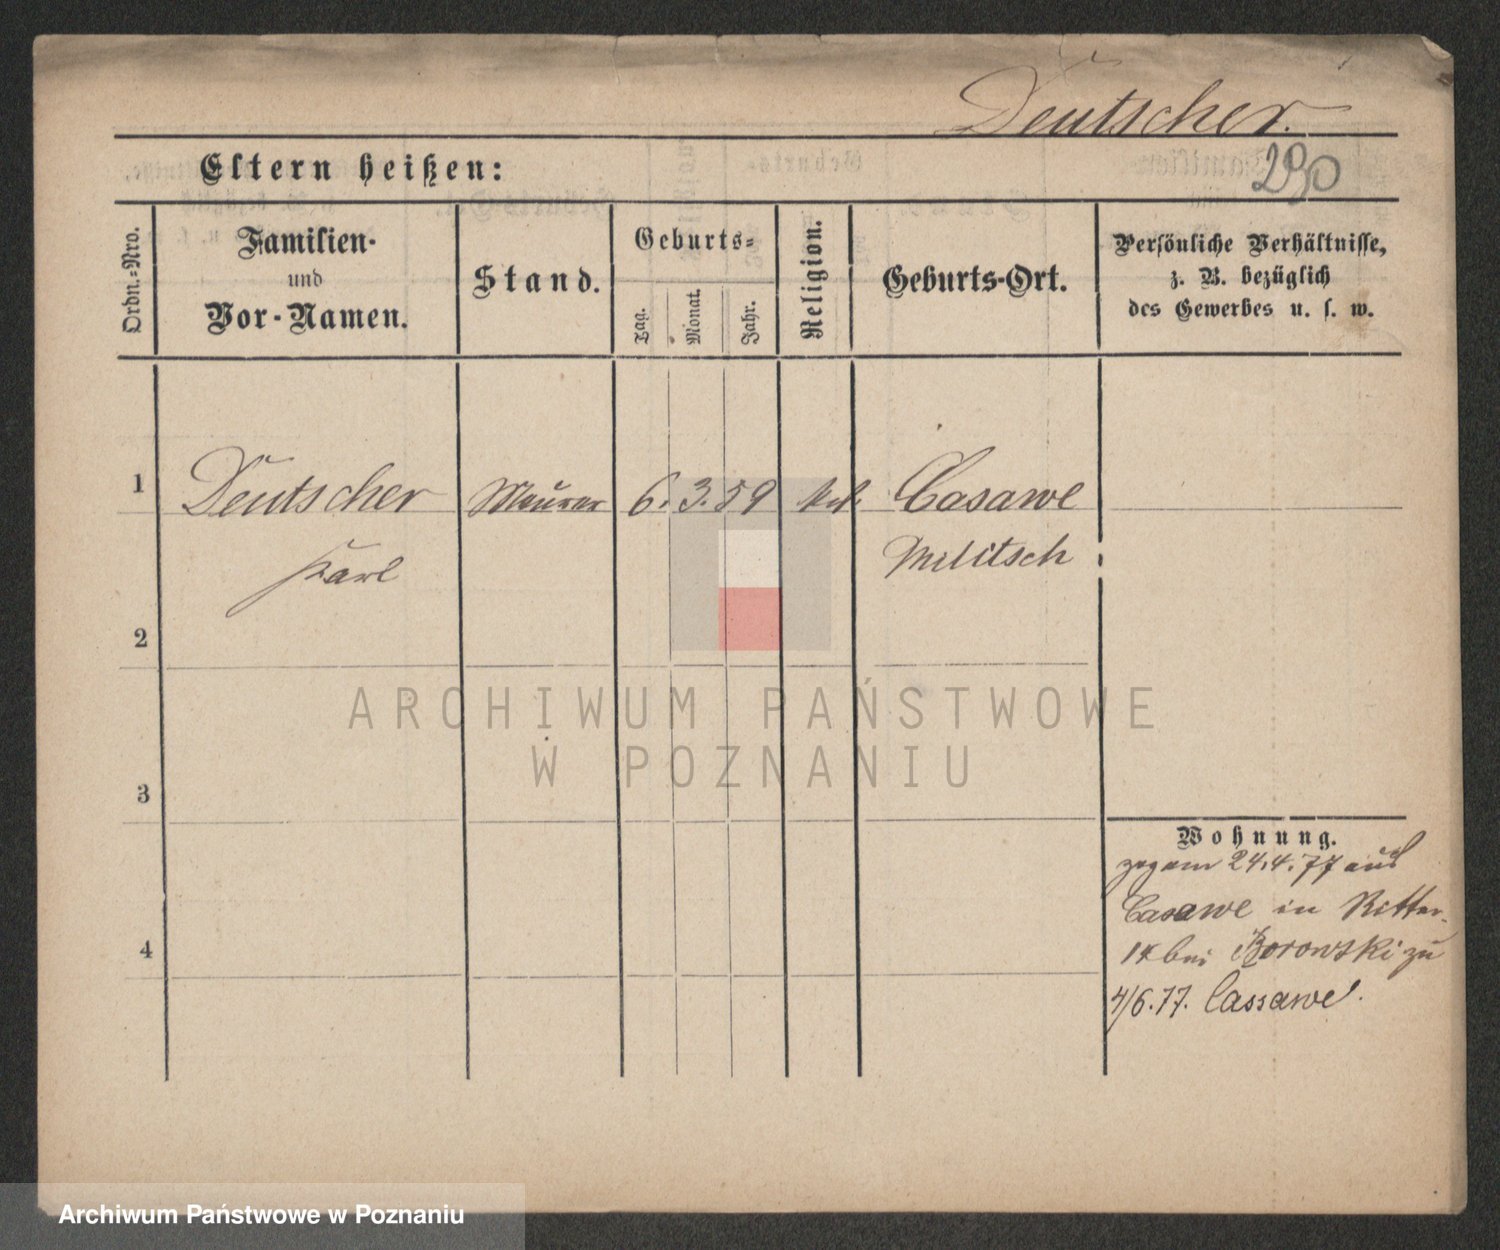 Deutscher.
290
Eltern heißen:
Ordn.=Nro.
Familien-
und
Vor-Namen.
Stand.
Geburts=
Tag.
Monat.
Jahr.
Religion.
Geburts-Ort.
Persönliche Verhältnisse,
z. B. bezüglich
des Gewerbes u. s. w.
1 Deutscher Maurer 6. 3. 59 Casawe
Karl Militsch
2
3
4
ARCHIWUM PAŃSTWOWE
W POZNANIU
Wohnung.
zog am 24.4.77 aus
Casawe in Ritter-
14 bei Borowski zu
4/6.77. Cassawe.
Archiwum Państwowe w Poznaniu